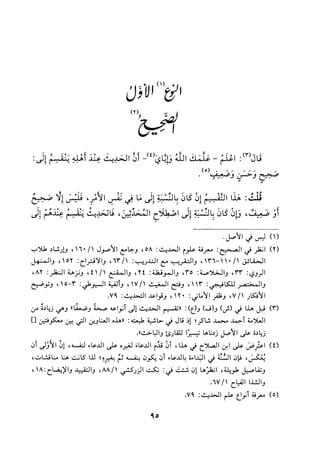 النوع(١) الأول
الصحيح(٢)
قال(٣): اعْلَمْ - عَلَّمَكَ اللَّهُ وَإِيَّايَ(٤) - أَنَّ الحَدِيثَ عِنْدَ أَهْلِهِ يَنْقَسِمُ إِلَى:
صَحِيحٍ وَحَسَنٍ وَضَعِيفٍ(٥).
قُلْتُ: هَذَا التَّقْسِيمُ إِنْ كَانَ بِالنِّسْبَةِ إِلَى مَا فِي نَفْسِ الأَمْرِ، فَلَيْسَ إِلَّا صَحِيحٌ
أَوْ ضَعِيفٌ، وَإِنْ كَانَ بِالنِّسْبَةِ إِلَى اصْطِلَاحِ المُحَدِّثِينَ، فَالحَدِيثُ يَنْقَسِمُ عِنْدَهُمْ إِلَى
(١) ليس في الأصل.
(٢) انظر في الصحيح: معرفة علوم الحديث: ٥٨، وجامع الأصول ١/١٦٠، وإرشاد طلاب
الحقائق ١/١١٠-١٣٦، والتقريب مع التدريب: ١/٦٣، والاقتراح: ١٥٢، والمنهل
الروي: ٣٣، والخلاصة: ٣٥، والموقظة: ٢٤، والمقنع ١/٤١، ونزهة النظر: ٨٢،
والمختصر للكافيجي: ١١٣، وفتح المغيث ١/١٧، وألفية السيوطي: ٣-١٥، وتوضيح
الأفكار ١/٧، وظفر الأماني: ١٢٠، وقواعد التحديث: ٧٩.
(٣) قبل هذا في (ش) و(ف) و(ع): «تقسيم الحديث إلى أنواعه صحة وضعفًا» وهي زيادة من
العلامة أحمد محمد شاكر؛ إذ قال في حاشية طبعته: «هذه العناوين التي بين معكوفتين []
زيادة على الأصل زدناها تيسيرًا للقارئ والباحث».
(٤) اعتُرِضَ على ابن الصلاح في هذا، أن قدَّم الدعاء لغيره على الدعاء لنفسه، إذ الأولى أن
يُعكس، فإن السُّنَّة في البداءة بالدعاء أن يكون بنفسه ثم بغيره؛ لذا كانت هنا مناقشات،
وتفاصيل طويلة، انظرها إن شئت في: نكت الزركشي ١/٨٨، والتقييد والإيضاح: ١٨،
والشذا الفياح ١/٦٧.
(٥) معرفة أنواع علم الحديث: ٧٩.
٩٥